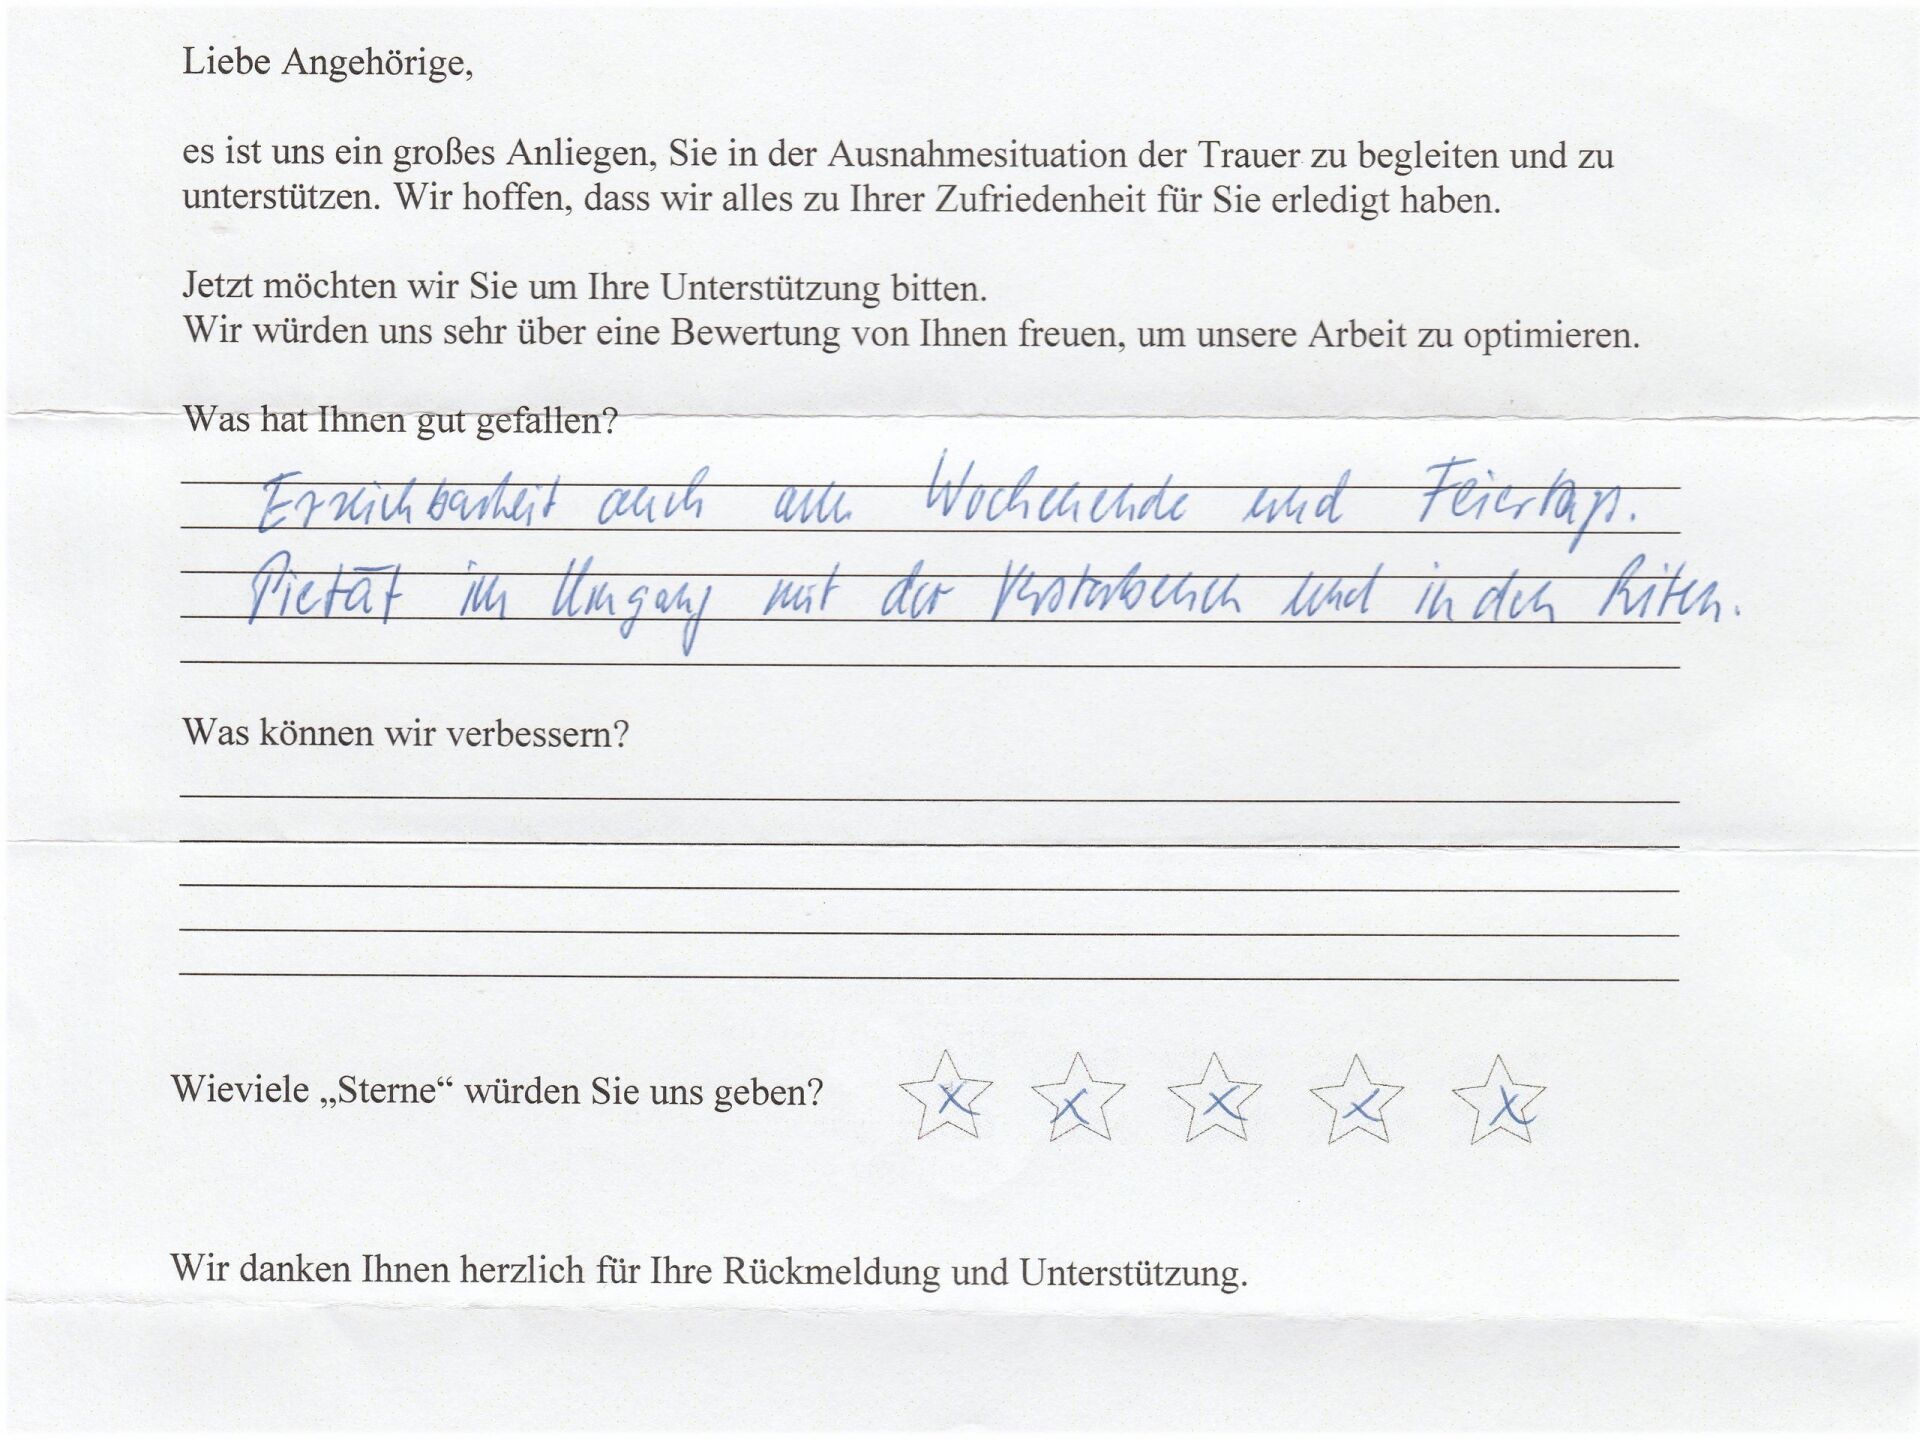 Liebe Angehörige,
es ist uns ein großes Anliegen, Sie in der Ausnahmesituation der Trauer zu begleiten und zu
unterstützen. Wir hoffen, dass wir alles zu Ihrer Zufriedenheit für Sie erledigt haben.
Jetzt möchten wir Sie um Ihre Unterstützung bitten.
Wir würden uns sehr über eine Bewertung von Ihnen freuen, um unsere Arbeit zu optimieren.
Was hat Ihnen gut gefallen?
Erreichbarkeit auch am Wochenende und Feiertags.
Pietät im Umgang mit der Verstorbenen und in den Riten.
Was können wir verbessern?
Wieviele „Sterne“ würden Sie uns geben? x x x x x
Wir danken Ihnen herzlich für Ihre Rückmeldung und Unterstützung.